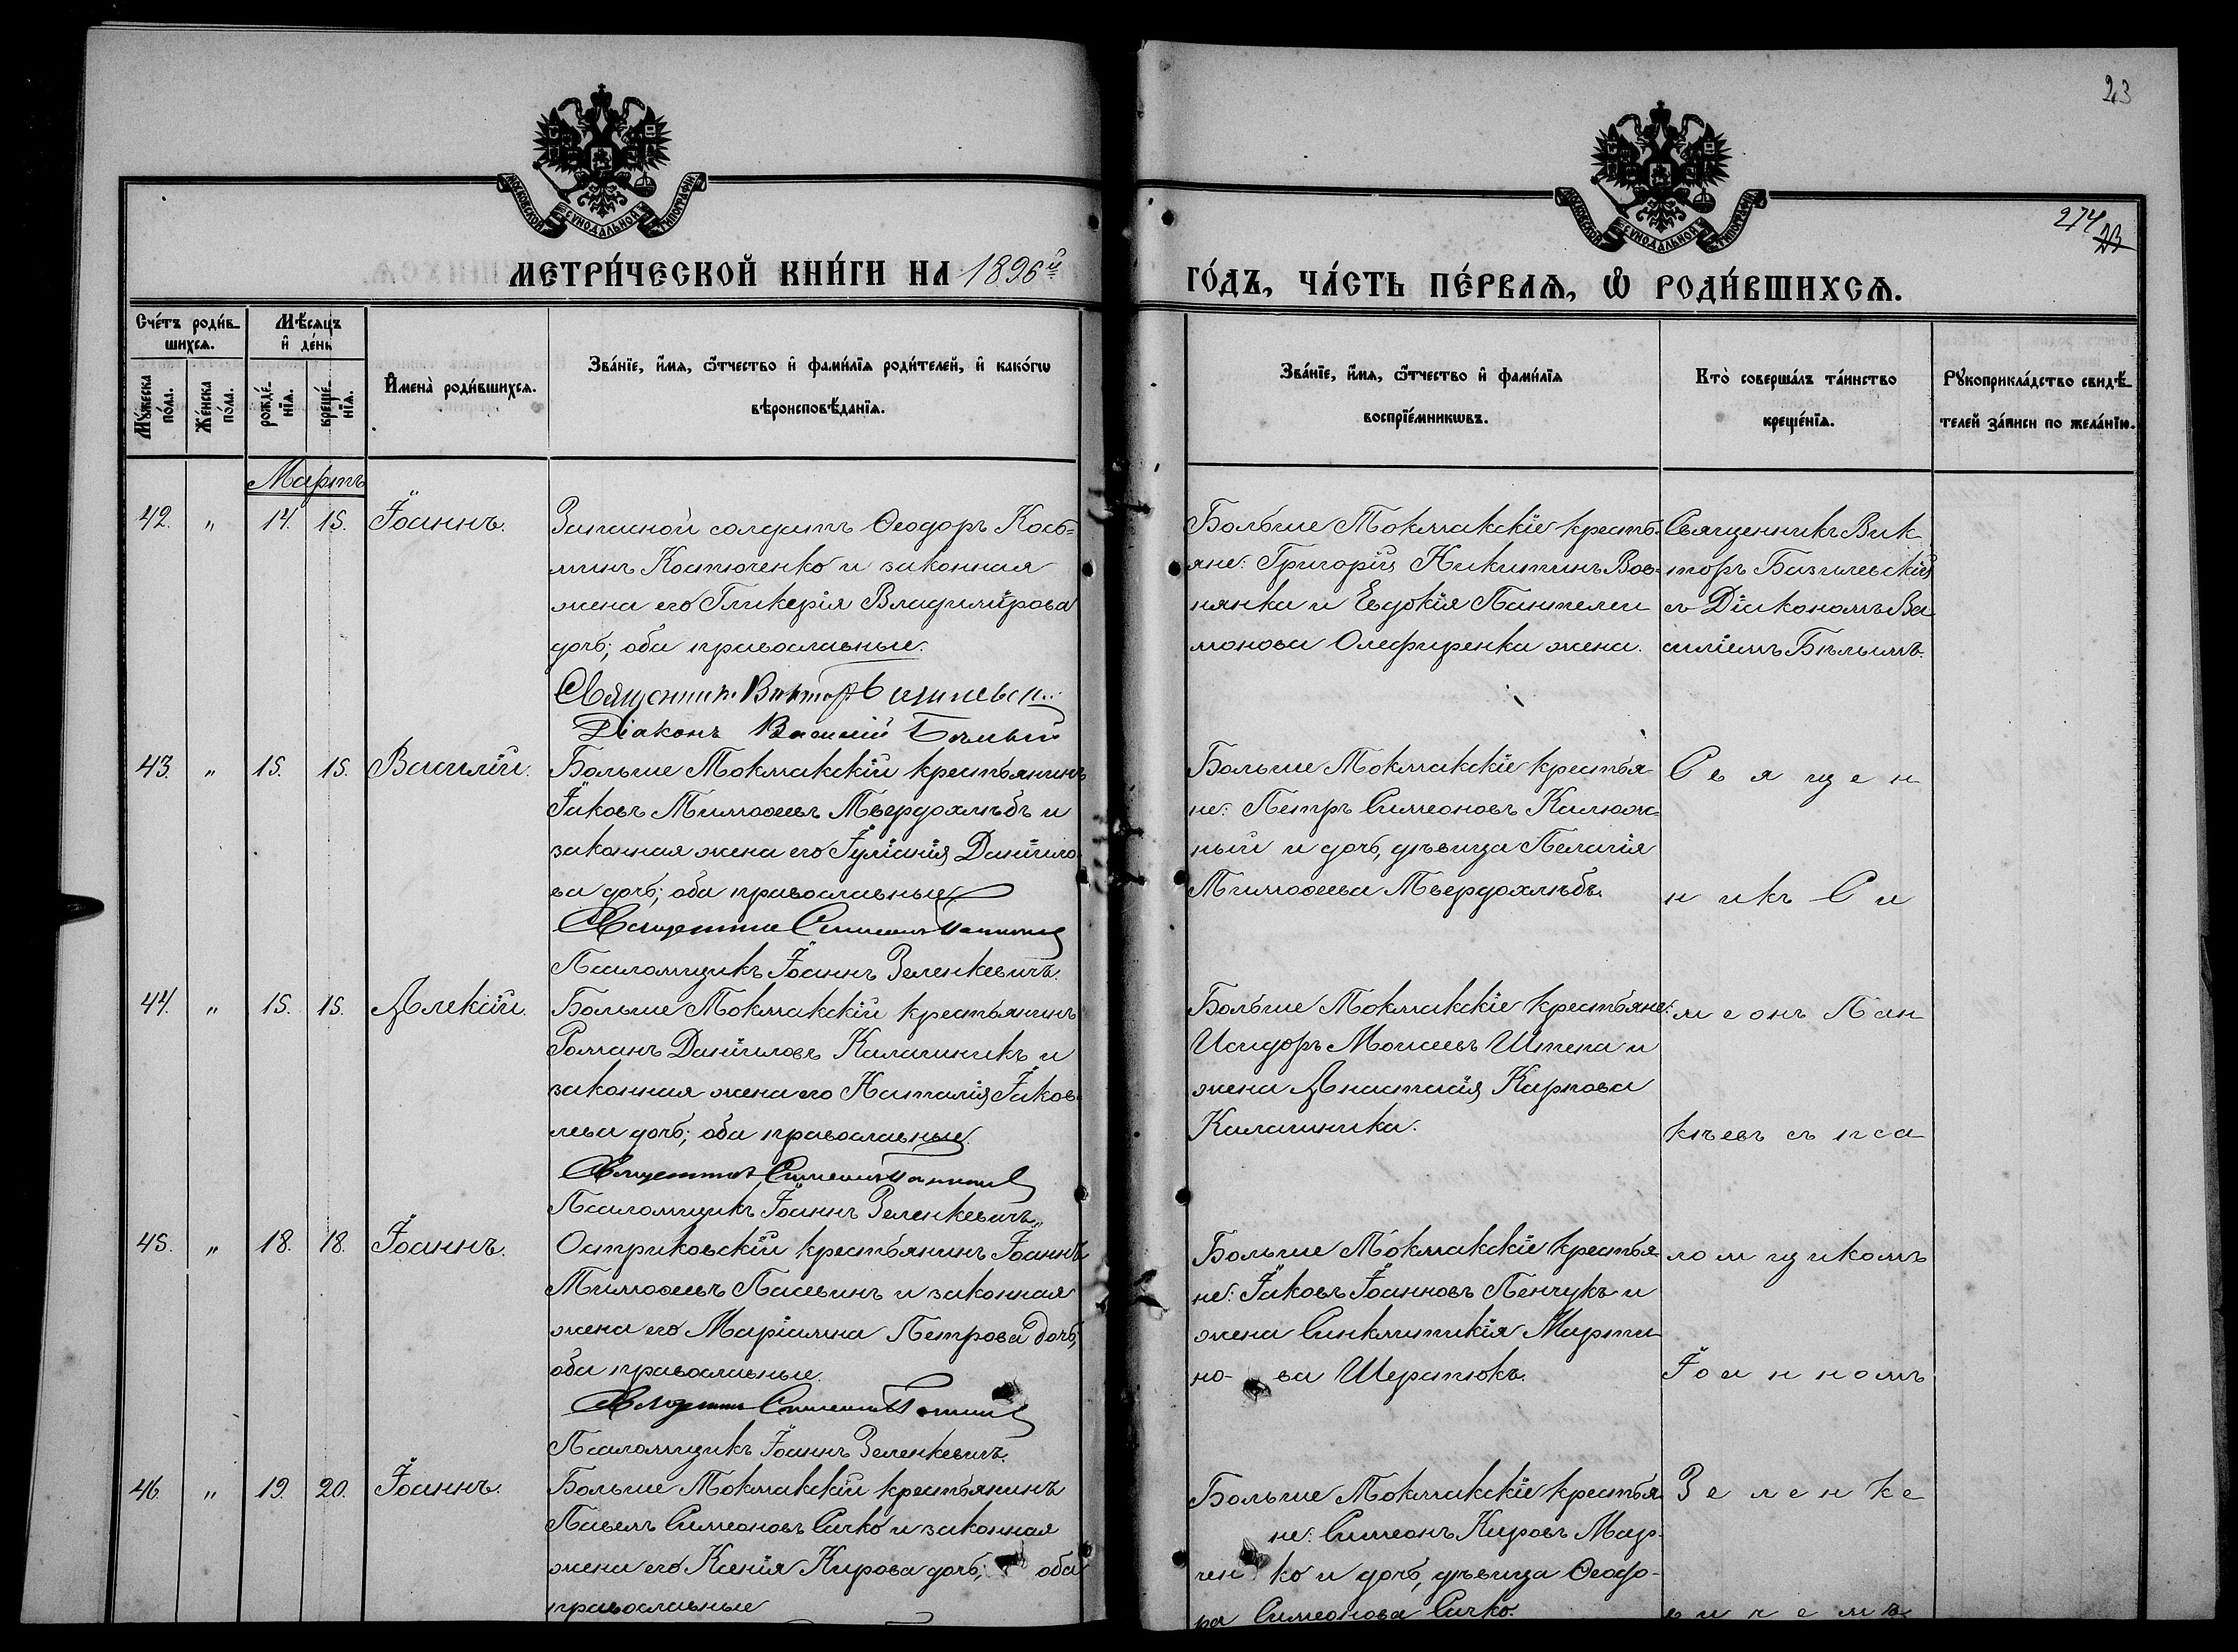 23
274
23
МОСКОВСКОЙ СѴНОДАЛЬНОЙ ТИПОГРАФІИ
МОСКОВСКОЙ СѴНОДАЛЬНОЙ ТИПОГРАФІИ
МЕТРИ́ЧЕСКОЙ КНИ́ГИ НА 1896й
ГО́ДЪ, ЧА́СТЬ ПЕ́РВАѦ, Ѡ҆ РОДИ́ВШИХСѦ.
Сче́тъ роди́в-
шихсѧ.
Мꙋ́жеска по́ла.
Же́нска по́ла.
Мѣ́сѧцъ
и҆ де́нь
рожде́-нїѧ.
креще́-нїѧ.
И҆мена̀ роди́вшихсѧ.
Зва́нїе, и҆́мѧ, ѻ҆́тчество и҆ фами́лїѧ роди́телей, и҆ како́гѡ
вѣроисповѣ́данїѧ.
Зва́нїе, и҆́мѧ, ѻ҆́тчество и҆ фами́лїѧ
воспрїе́мникѡвъ.
Кто̀ соверша́лъ та́инство
креще́нїѧ.
Рꙋкоприкла́дство свидѣ́-
телей за́писи по жела́нїю.
Мартъ
42. " 14. 15. Іоаннъ.
Запасной солдатъ Ѳеодоръ Кось-
минъ Костюченко и законная
жена его Гликерія Владимірова
дочь; оба православные.
Священникъ Викторъ Базилевскій
Діаконъ Василій Бѣлый
Больше Токмакскіе кресть-
яне: Григорій Никитинъ Вов-
нянка и Евдокія Пантелеи
монова Олефиренка жена.
Священникъ Вик
торъ Базилевскій
съ Діакономъ Ва
силіемъ Бѣлымъ.
43. " 15. 15. Василій.
Больше Токмакскій крестьянинъ
Іаковъ Тимоѳеевъ Твердохлѣбъ и
законная жена его Іуліанія Даніило-
ва дочь; оба православные
Священникъ Симеонъ
Псаломщикъ Іоаннъ Зеленкевичъ.
Больше Токмакскіе крестья
не: Петръ Симеоновъ Калюж-
ный и дочь, дѣвица Пелагія
Тимоѳеева Твердохлѣбъ.
С в я щ е н
н и к ъ С и
44. " 15. 15. Алексій.
Больше Токмакскій крестьянинъ
Романъ Даніиловъ Калашникъ и
законная жена его Наталія Іаков-
лева дочь; оба православные.
Священникъ Симеонъ
Псаломщикъ Іоаннъ Зеленкевичъ.
Больше Токмакскіе крестьяне:
Исидоръ Моисеевъ Штепа и
жена Анастасія Карпова
Калашника.
м е онъ Пан
кѣевъ съ пса
45. " 18. 18. Іоаннъ.
Остриковскій крестьянинъ Іоаннъ
Тимоѳеевъ Пасевинъ и законная
жена его Маріамна Петрова дочь;
оба православные.
Священникъ Симеонъ
Псаломщикъ Іоаннъ Зеленкевичъ.
Больше Токмакскіе крестья
не: Іаковъ Іоанновъ Пенчукъ и
жена Синклитикія Марти
но- ва Шерстюкъ.
лом щикомъ
І о а н н омъ
46. " 19. 20. Іоаннъ.
Больше Токмакскій крестьянинъ
Павелъ Симеоновъ Сичко и законная
жена его Ксенія Кирова дочь; оба
православные
Больше Токмакскіе крестья
не: Симеонъ Кировъ Мар-
чен ко и дочь, дѣвица Ѳеодо-
ра Симеонова Сичко.
З е л е н к е
в и ч е м ъ